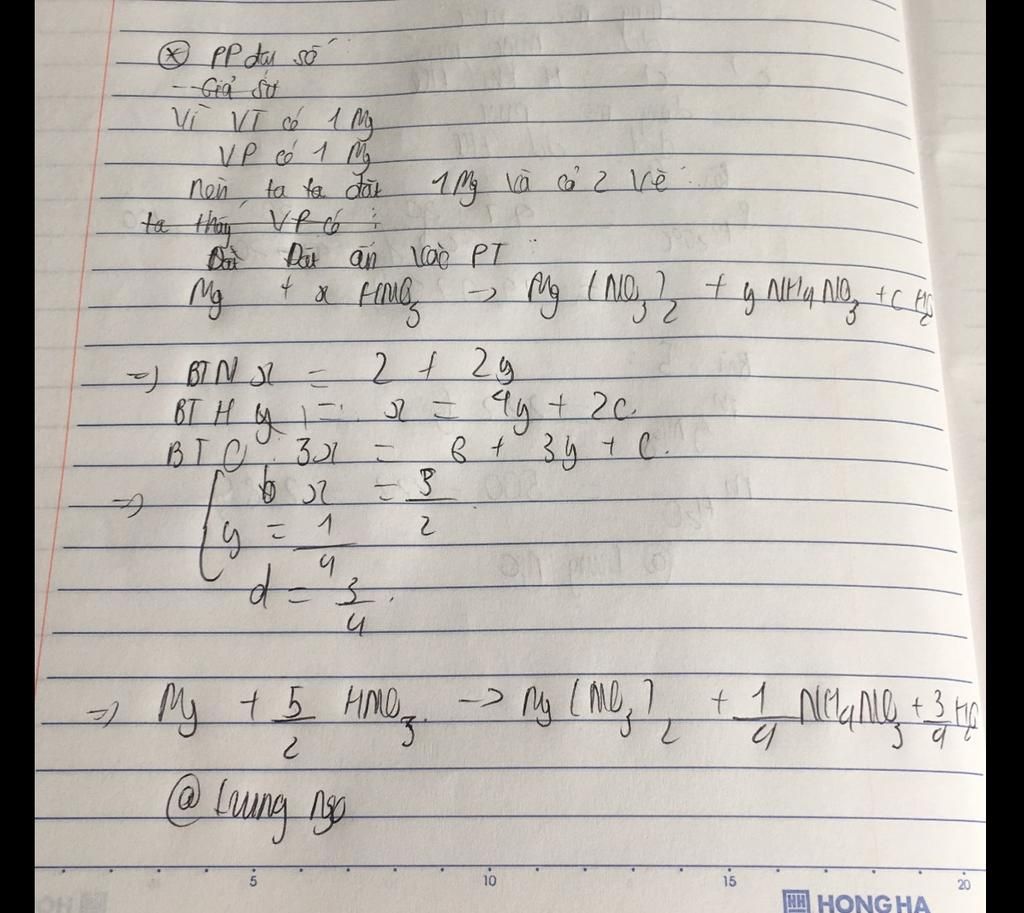 ⊛ PP đại số
- Giả sử
Vì VT có 1 Mg
VP có 1 Mg
nên ta ta đặt 1 Mg và cả 2 vế
ta thấy VP có :
Đặt ẩn vào PT :
Mg + x HNO3 -> Mg (NO3)2 + y NH4NO3 + c H2O
=> BTN x = 2 + 2y
BT H y : x = 4y + 2c
BT O : 3x = 6 + 3y + c.
=> { x = 5/2
y = 1/4
d = 3/4.
=> Mg + 5/2 HNO3 -> Mg (NO3)2 + 1/4 NH4NO3 + 3/4 H2O
5 10 15 20
HH HONG HA